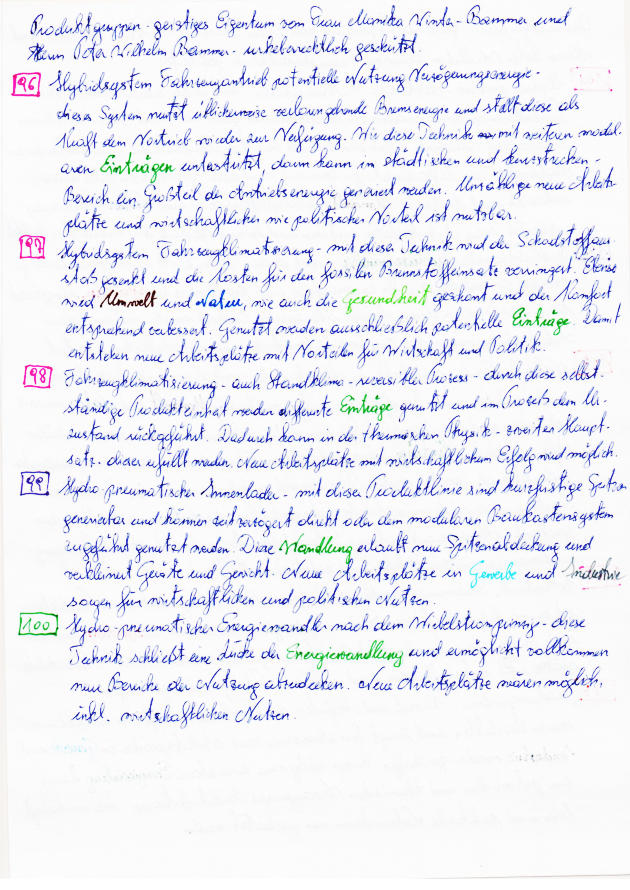 Produktgruppen - geistiges Eigentum von Frau Monika Winter-Bammer und
Herrn Peter Wilhelm Bammer - urheberrechtlich geschützt.
96 Hybridsystem Fahrzeugantrieb potentielle Nutzung Verzögerungsenergie -
dieses System nutzt üblicherweise verlorengehende Bremsenergie und stellt diese als
Kraft dem Vortrieb wieder zur Verfügung. Wir diese Technik mit weiteren modul-
aren Einträgen unterstützt, dann kann im städtischen und kurzstrecken -
Bereich ein Großteil der Antriebsenergie generiert werden. Unzählige neue Arbeits-
plätze und wirtschaftlicher wie politischer Vorteil ist nutzbar.
97 Hybridsystem Fahrzeugklimatisierung - mit dieser Technik wird der Schadstoffaus-
stoß gesenkt und die Kosten für den fossilen Brennstoffeinsatz verringert. Ebenso
wird Umwelt und Natur, wie auch die Gesundheit geschont und der Komfort
entsprechend verbessert. Genutzt werden ausschließlich potentielle Einträge. Damit
entstehen neue Arbeitsplätze mit Vorteilen für Wirtschaft und Politik.
98 Fahrzeugklimatisierung - auch Standklima - reversibler Prozess - durch diese selbst-
ständige Produkteinheit werden differente Einträge genutzt und im Prozess dem Ur-
zustand rückgeführt. Dadurch kann in der thermischen Physik - zweiter Haupt-
satz - dieser erfüllt werden. Neue Arbeitsplätze mit wirtschaftlichem Erfolg wird möglich.
99 Hydro-pneumatischer Innenlader - mit dieser Produktlinie sind kurzfristige Spitzen
generierbar und können zeitverzögert direkt oder dem modularen Baukastensystem
zugeführt genutzt werden. Diese Wandlung erlaubt neue Spitzenabdeckung und
verkleinert Geräte und Gewicht. Neue Arbeitsplätze in Gewerbe und Industrie
sorgen für wirtschaftlichen und politischen Nutzen.
100 Hydro-pneumatischer Energiewandler nach dem Wirbelstromprinzip - diese
Technik schließt eine Lücke der Energiewandlung und ermöglicht vollkommen
neue Bereiche der Nutzung abzudecken. Neue Arbeitsplätze wären möglich,
inkl. wirtschaftlichen Nutzen.